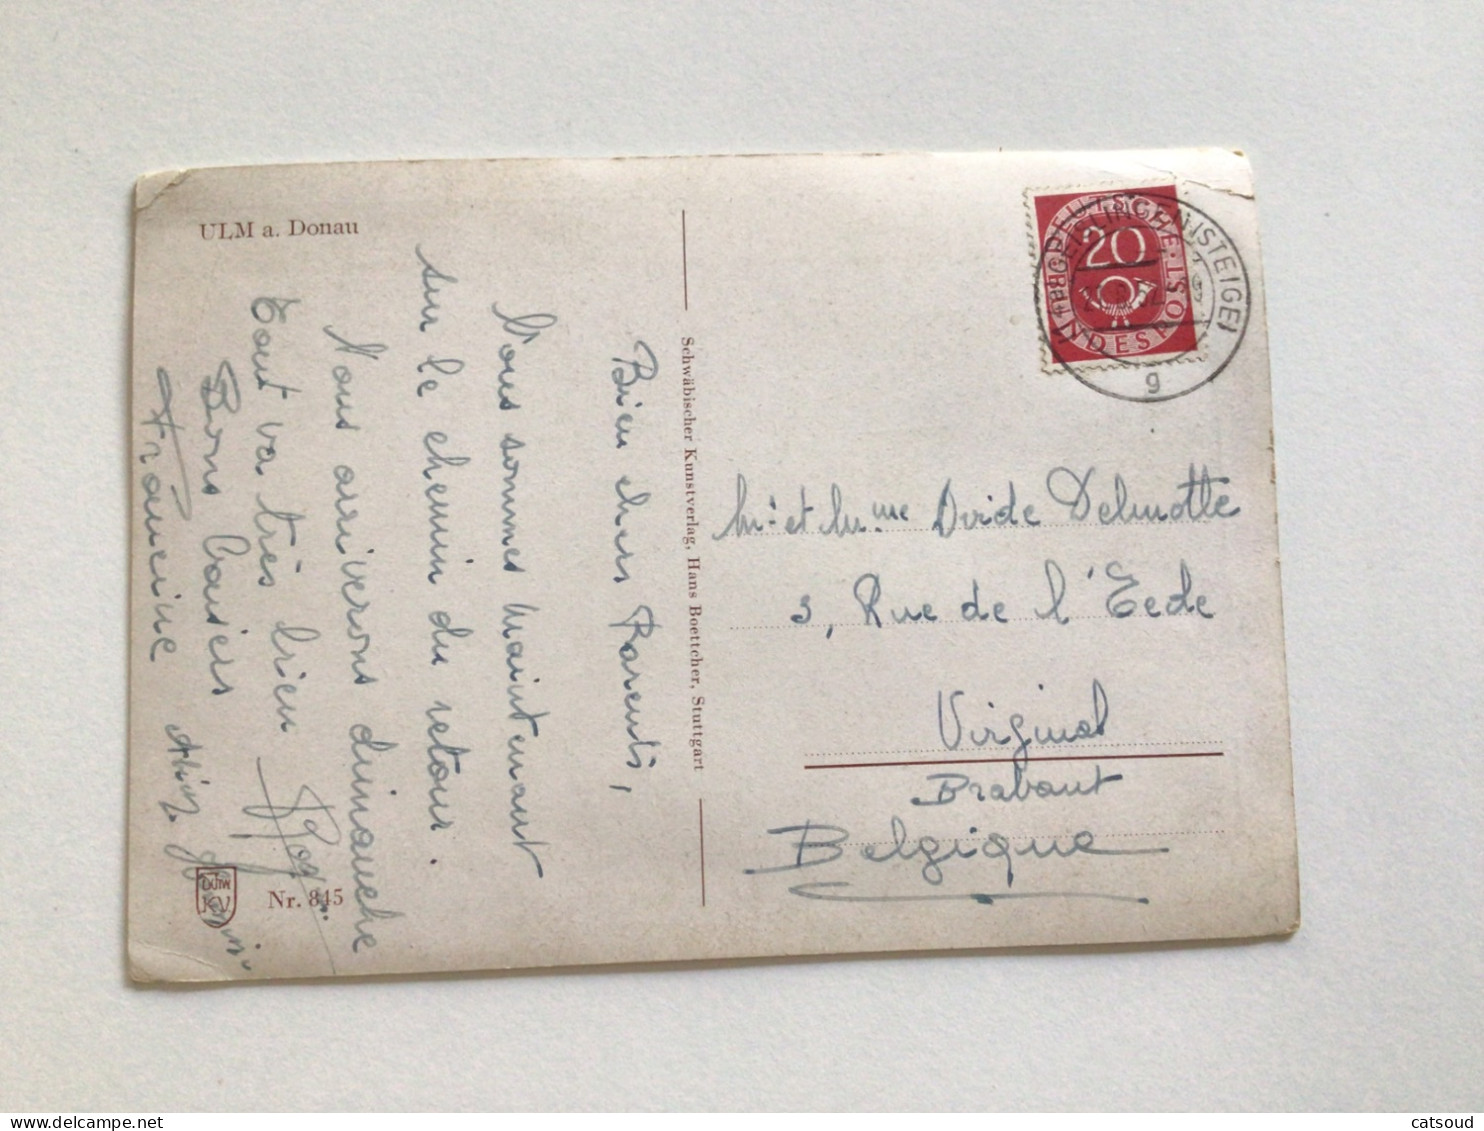 ULM a. Donau
Bien chers Parents,
Nous sommes maintenant
sur le chemin du retour.
Nous arriverons dimanche
Tout va très bien
Bons baisers
Francine
Nr. 845
Schwäbischer Kunstverlag, Hans Boettcher, Stuttgart
DEUTSCHE BUNDESPOST
20
GEISLINGEN (STEIGE)
g
Mr et Mme Ovide Delmotte
3, Rue de l'Eede
Virginal
Brabant
Belgique
catsoud